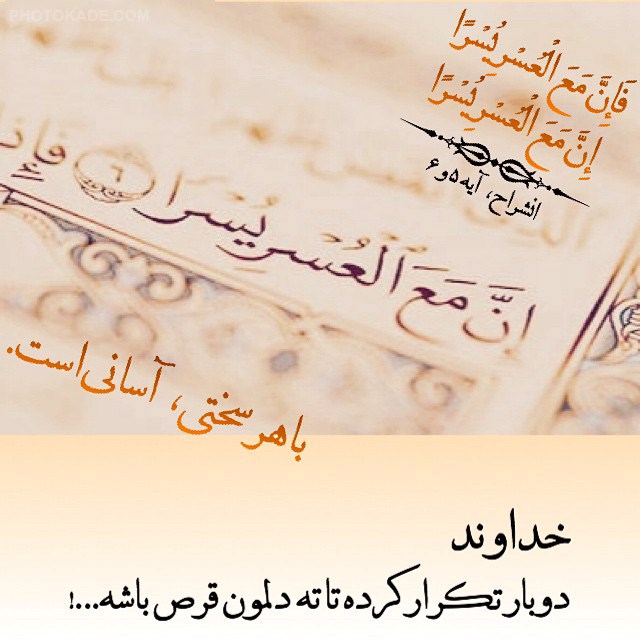 PHOTOKADE.COM
فَإِنَّ مَعَ الْعُسْرِ يُسْرًا
إِنَّ مَعَ الْعُسْرِ يُسْرًا
انشراح، آیه ۵ و ۶
إِنَّ مَعَ الْعُسْرِ يُسْرًا ٦ فَإِذَا
با هر سختی، آسانی است.
خداوند
دوبار تکرار کرده تا ته دلمون قرص باشه...!